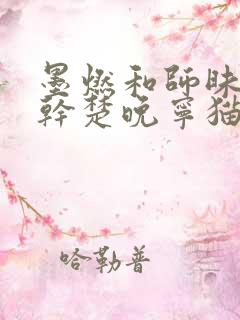 墨燃和師昧
幹楚晚寧猫
哈勒普